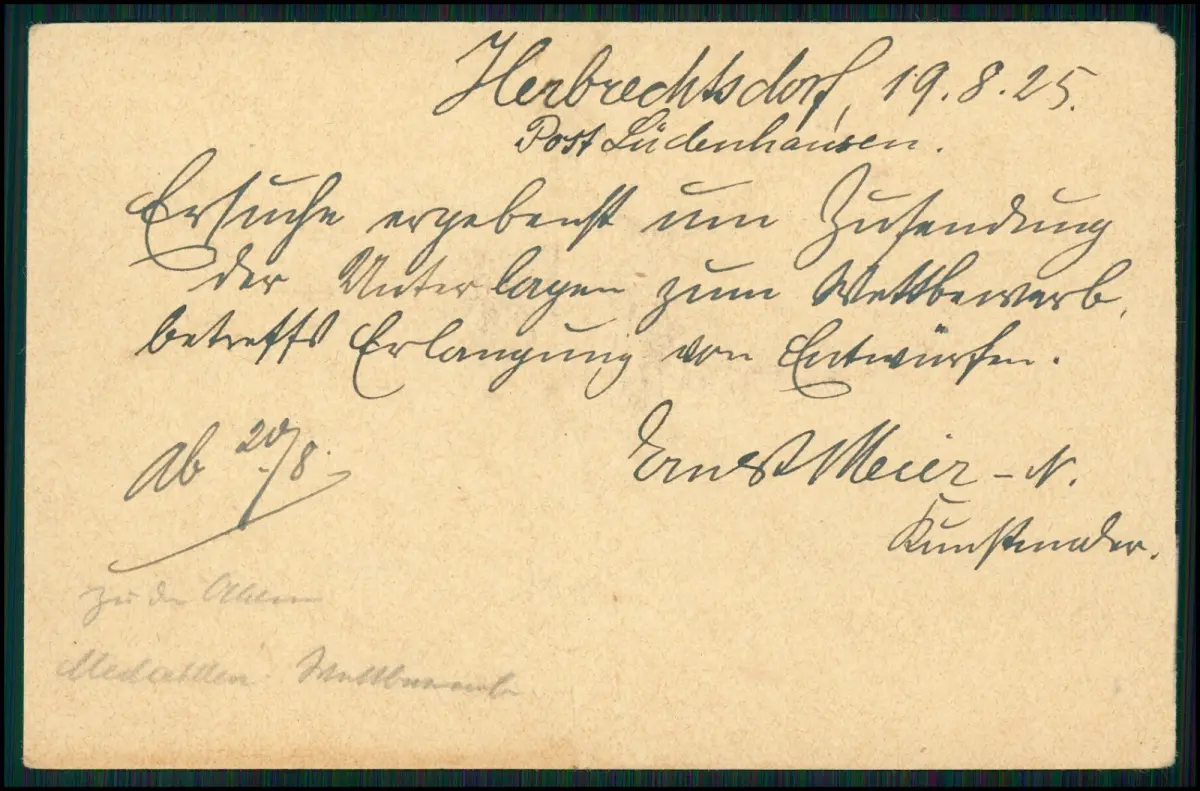 Herbrechtsdorf, 19.8.25.
Post Lüdenhausen.
Ersuche ergebenst um Zusendung
der Unterlagen zum Wettbewerb,
betreffs Erlangung von Entwürfen.
Ab 20/8.
Ernst Meier-N.
Kunstmaler.
zu den Akten
Medaillen Wettbewerb